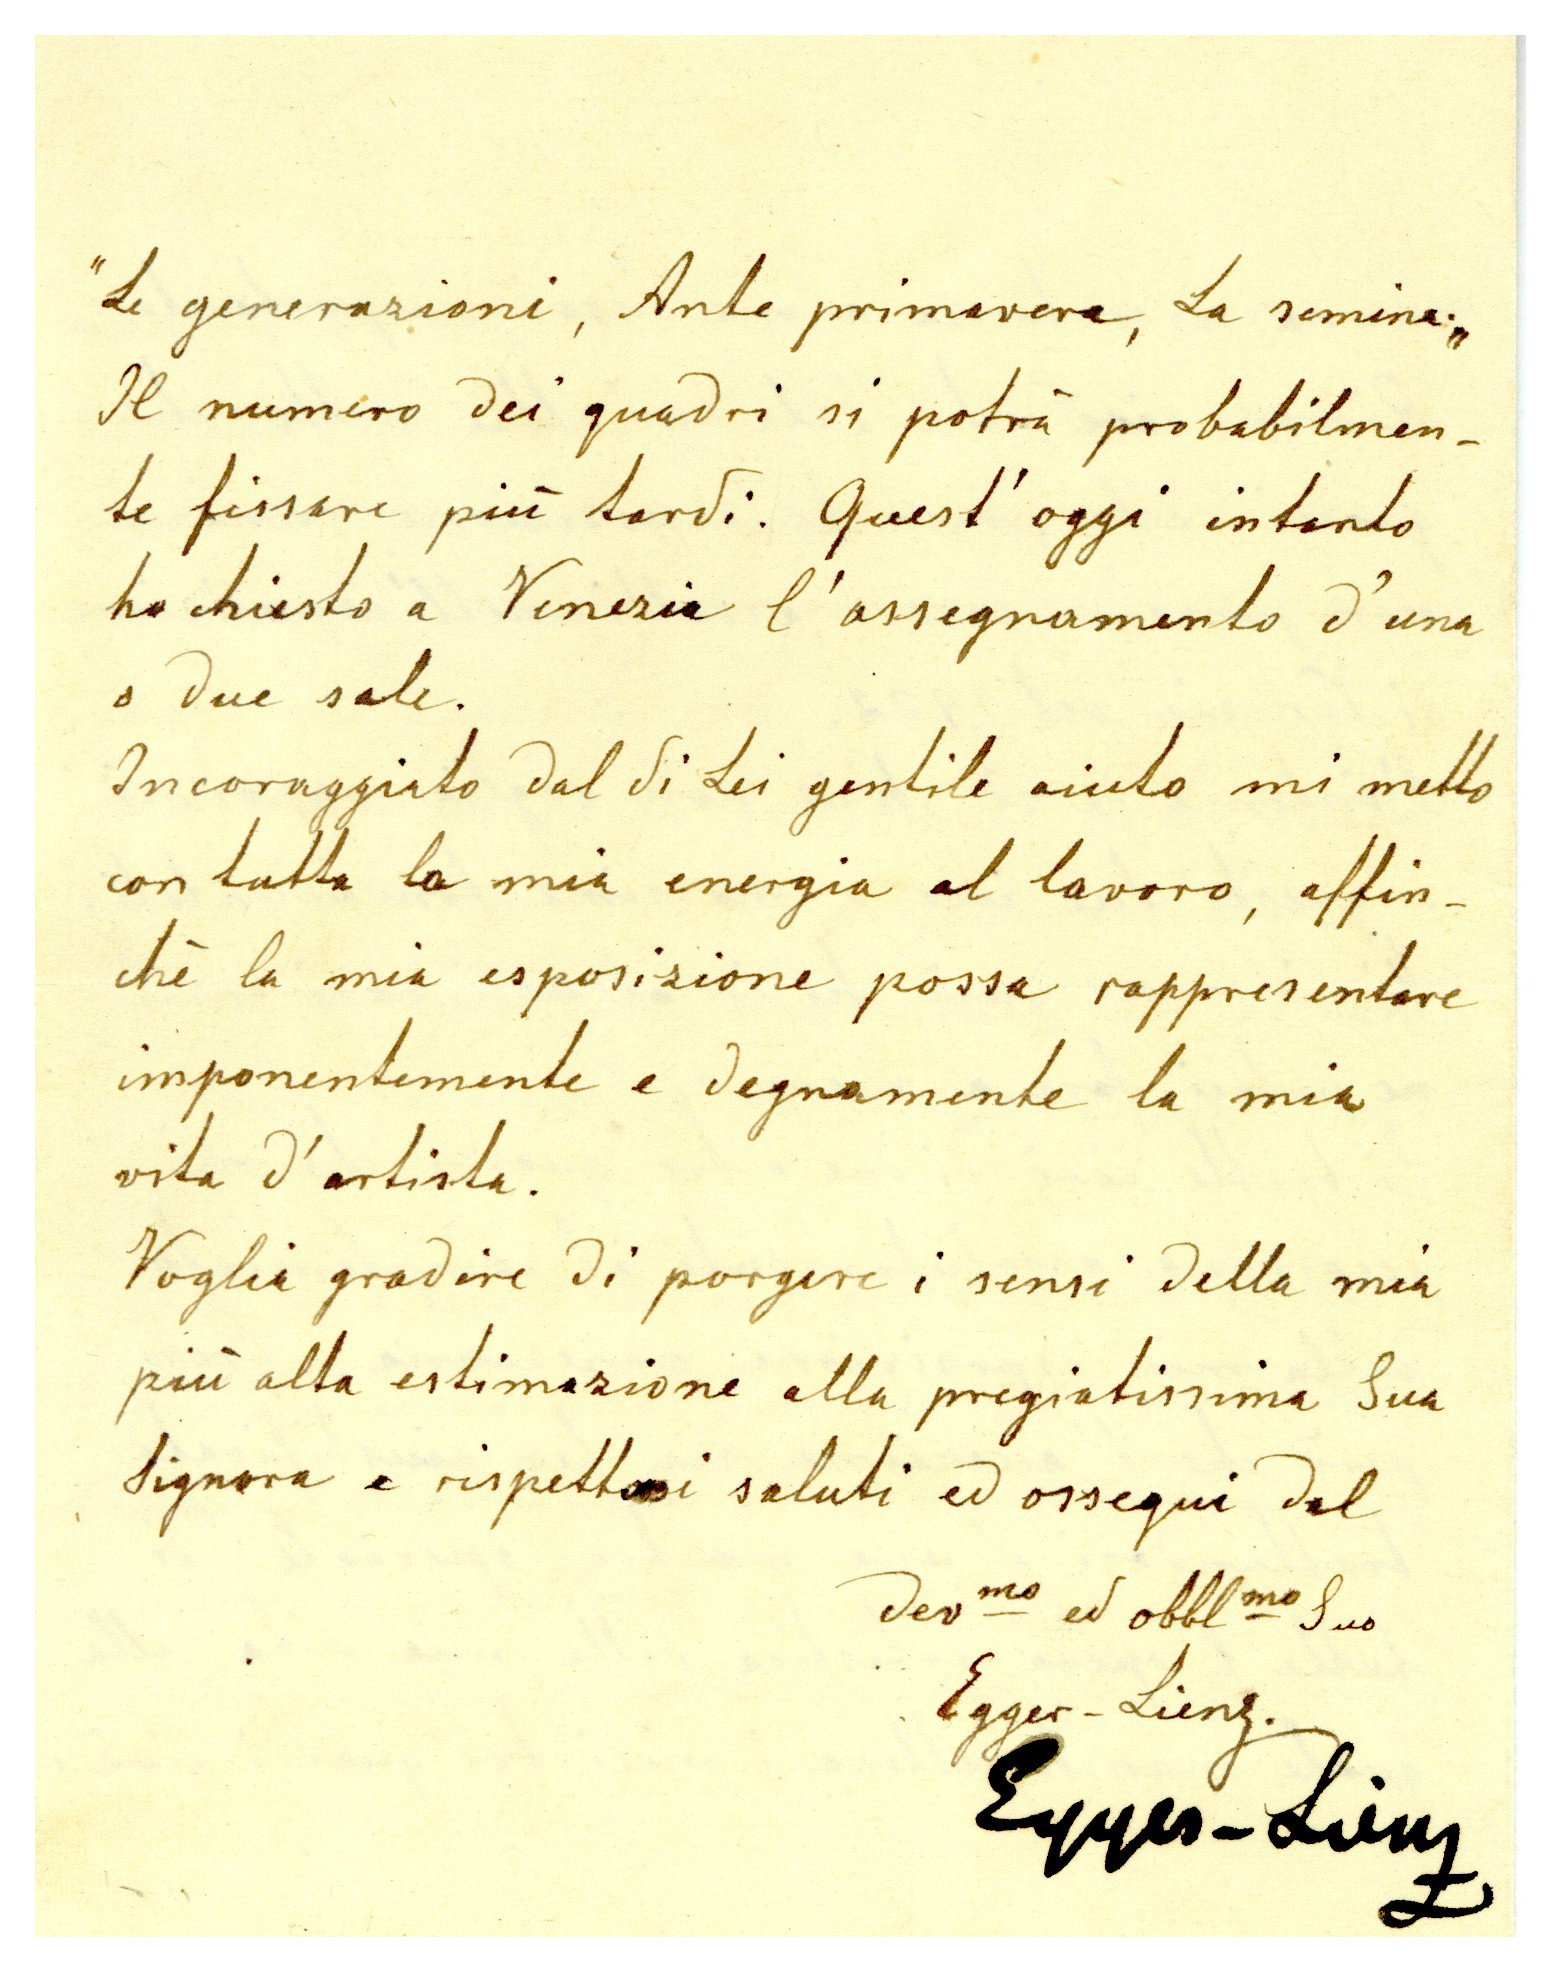 "Le generazioni, Ante primavera, La semina."
Il numero dei quadri si potrà probabilmen-
te fissare più tardi. Quest'oggi intanto
ho chiesto a Venezia l'assegnamento d'una
o due sale.
Incoraggiato dal di Lei gentile aiuto mi metto
con tutta la mia energia al lavoro, affin-
chè la mia esposizione possa rappresentare
imponentemente e degnamente la mia
vita d'artista.
Voglia gradire di porgere i sensi della mia
più alta estimazione alla pregiatissima Sua
Signora e rispettosi saluti ed ossequi dal
dev mo ed obbl mo Suo
Egger-Lienz.
Egger-Lienz